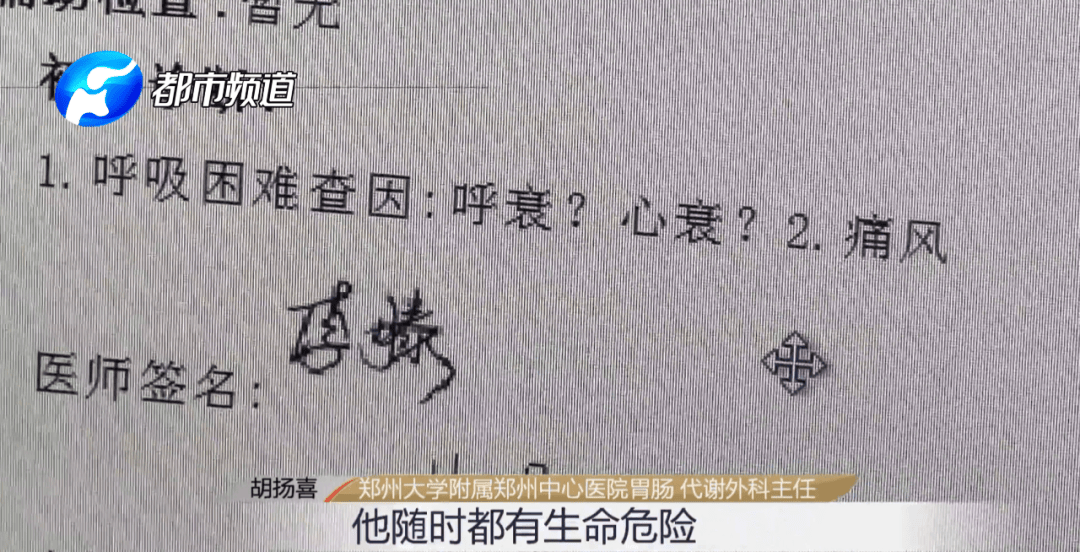 辅助检查：暂无
都市频道
1. 呼吸困难查因：呼衰？ 心衰？2. 痛风
医师签名：
胡扬喜 郑州大学附属郑州中心医院胃肠 代谢外科主任
他随时都有生命危险